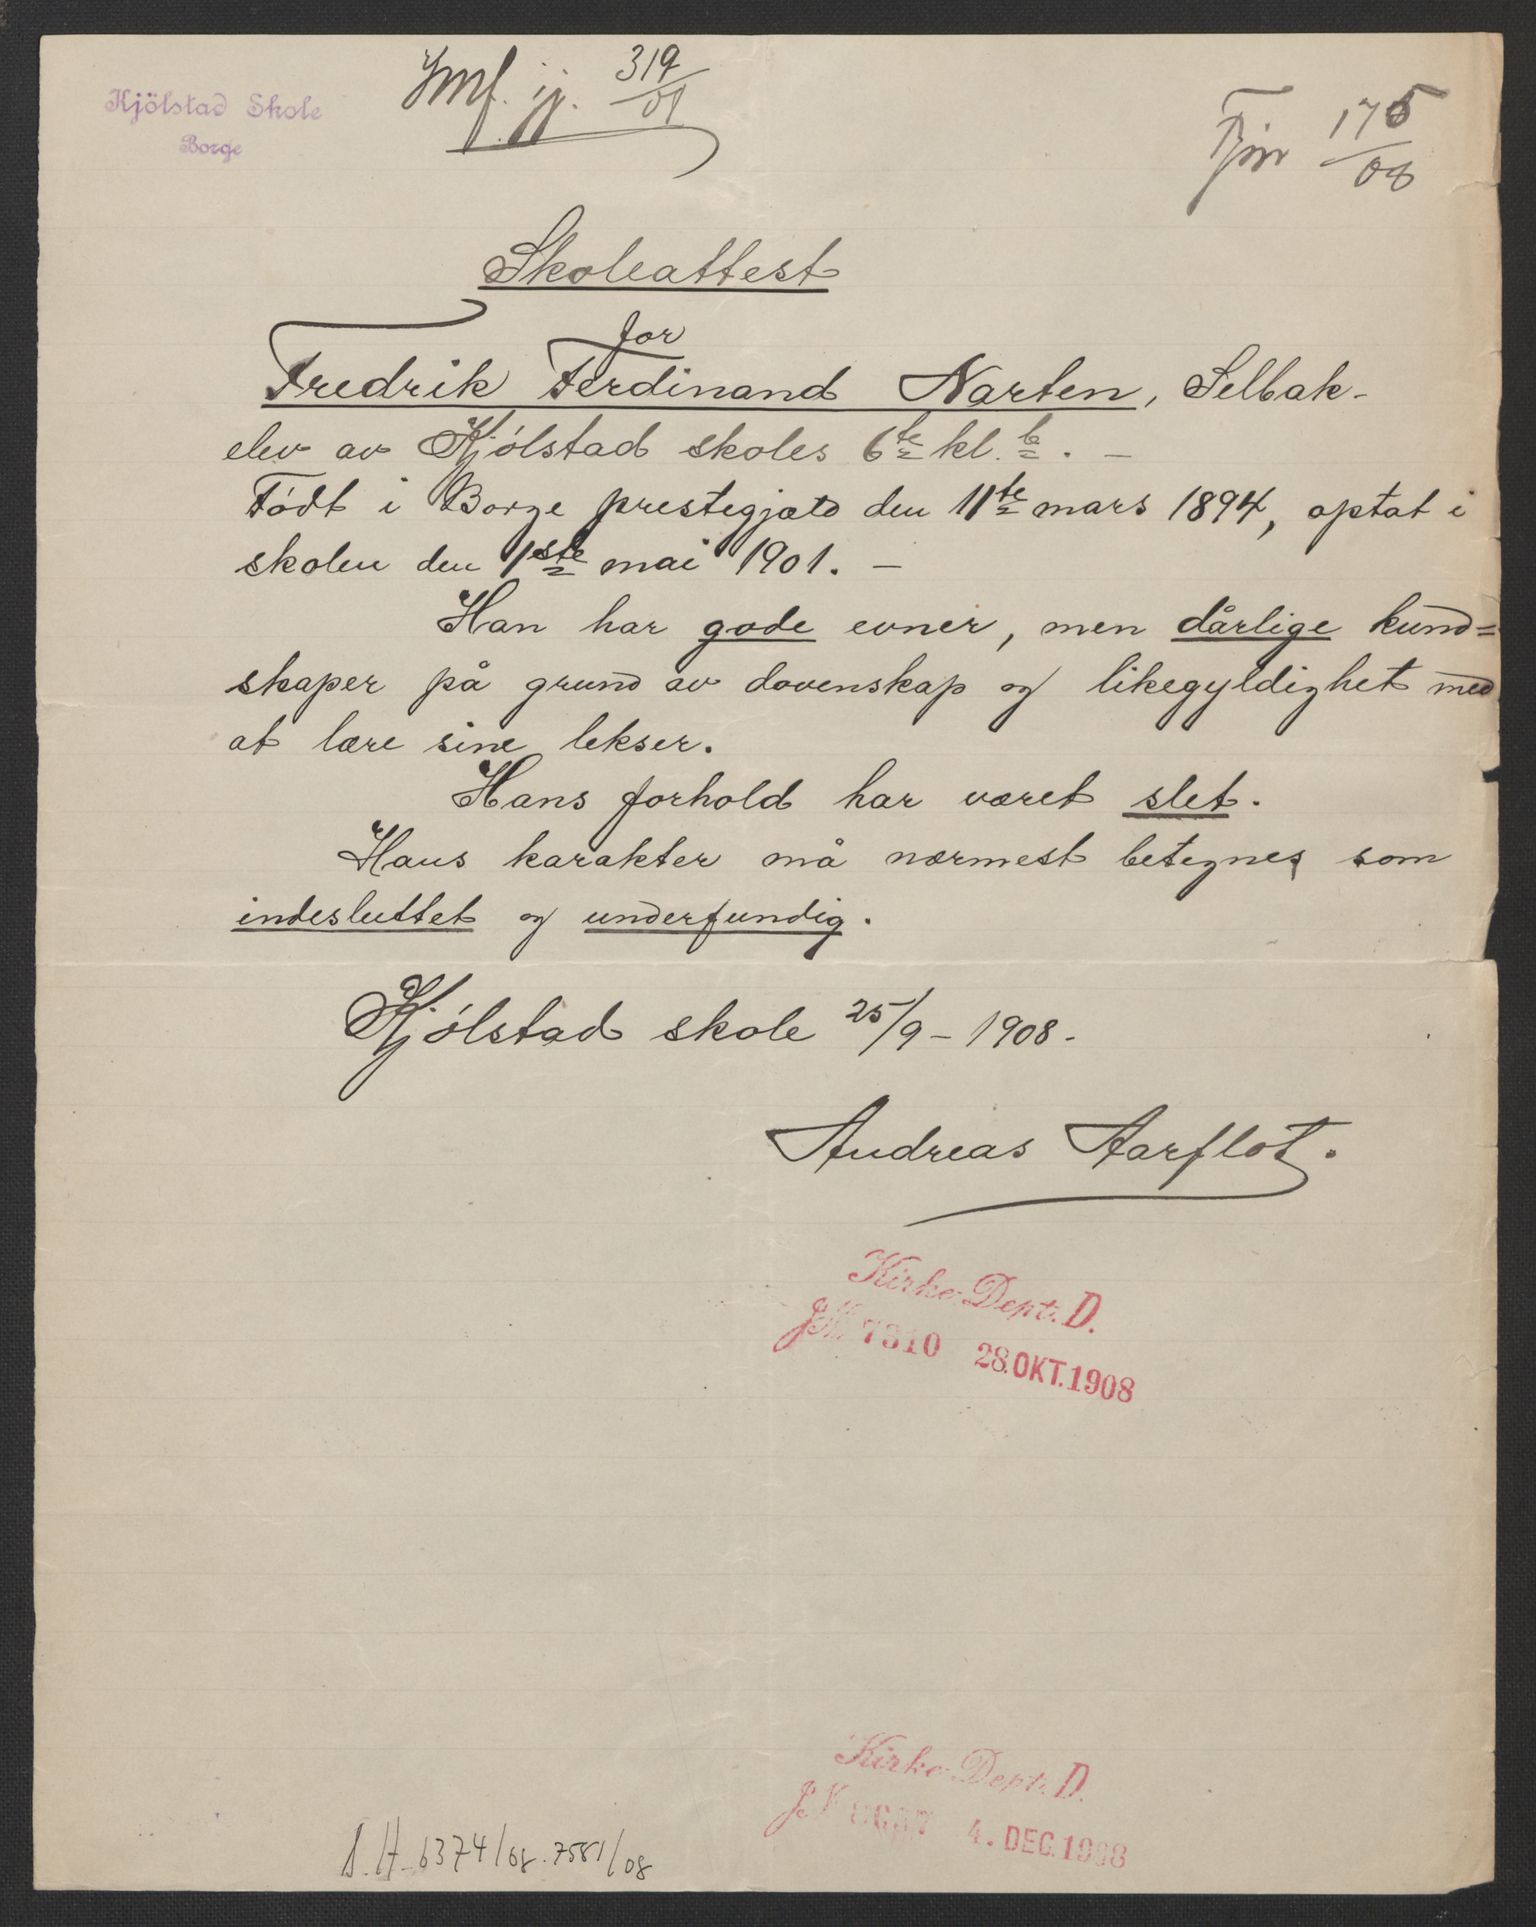 Kjölstad Skole
Borge
319/09
175/08
Skoleattest
for
Fredrik Ferdinand Narten, Selbak-
elev av Kjólstad skoles 6te kl. b. -
Födt i Borge prestegjæld den 11te mars 1894, optat i
skolen den 1ste mai 1901. -
Han har gode evner, men dårlige kund=
skaper på grund av dovenskap og likegyldighet med
at lære sine lekser.
Hans forhold har været slet.
Hans karakter må nærmest betegnes som
indesluttet og underfundig.
Kjólstad skole 25/9 - 1908.
Andreas Aarflot.
Kirke-Dept. D.
J.N. 7310 28.OKT.1908
Kirke-Dept. D.
J.N. 4. DEC.1908
S.H. 6374/08. 7581/08